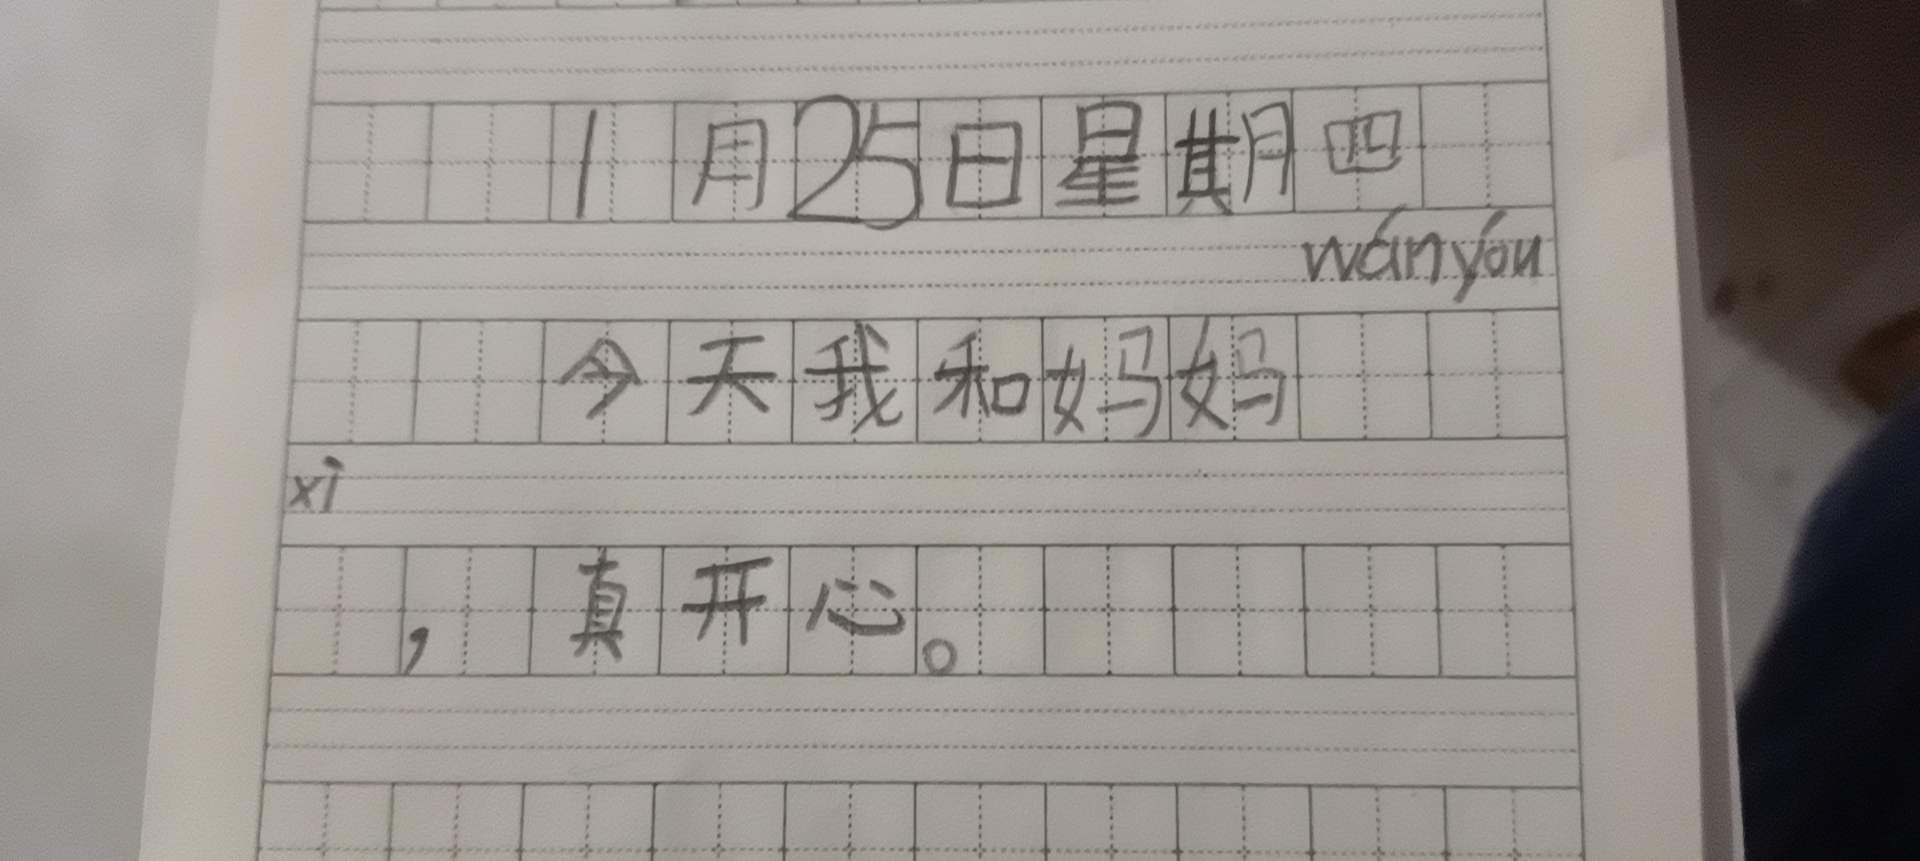 1月25日星期四
wányóu
今天我和妈妈
xì
，真开心。